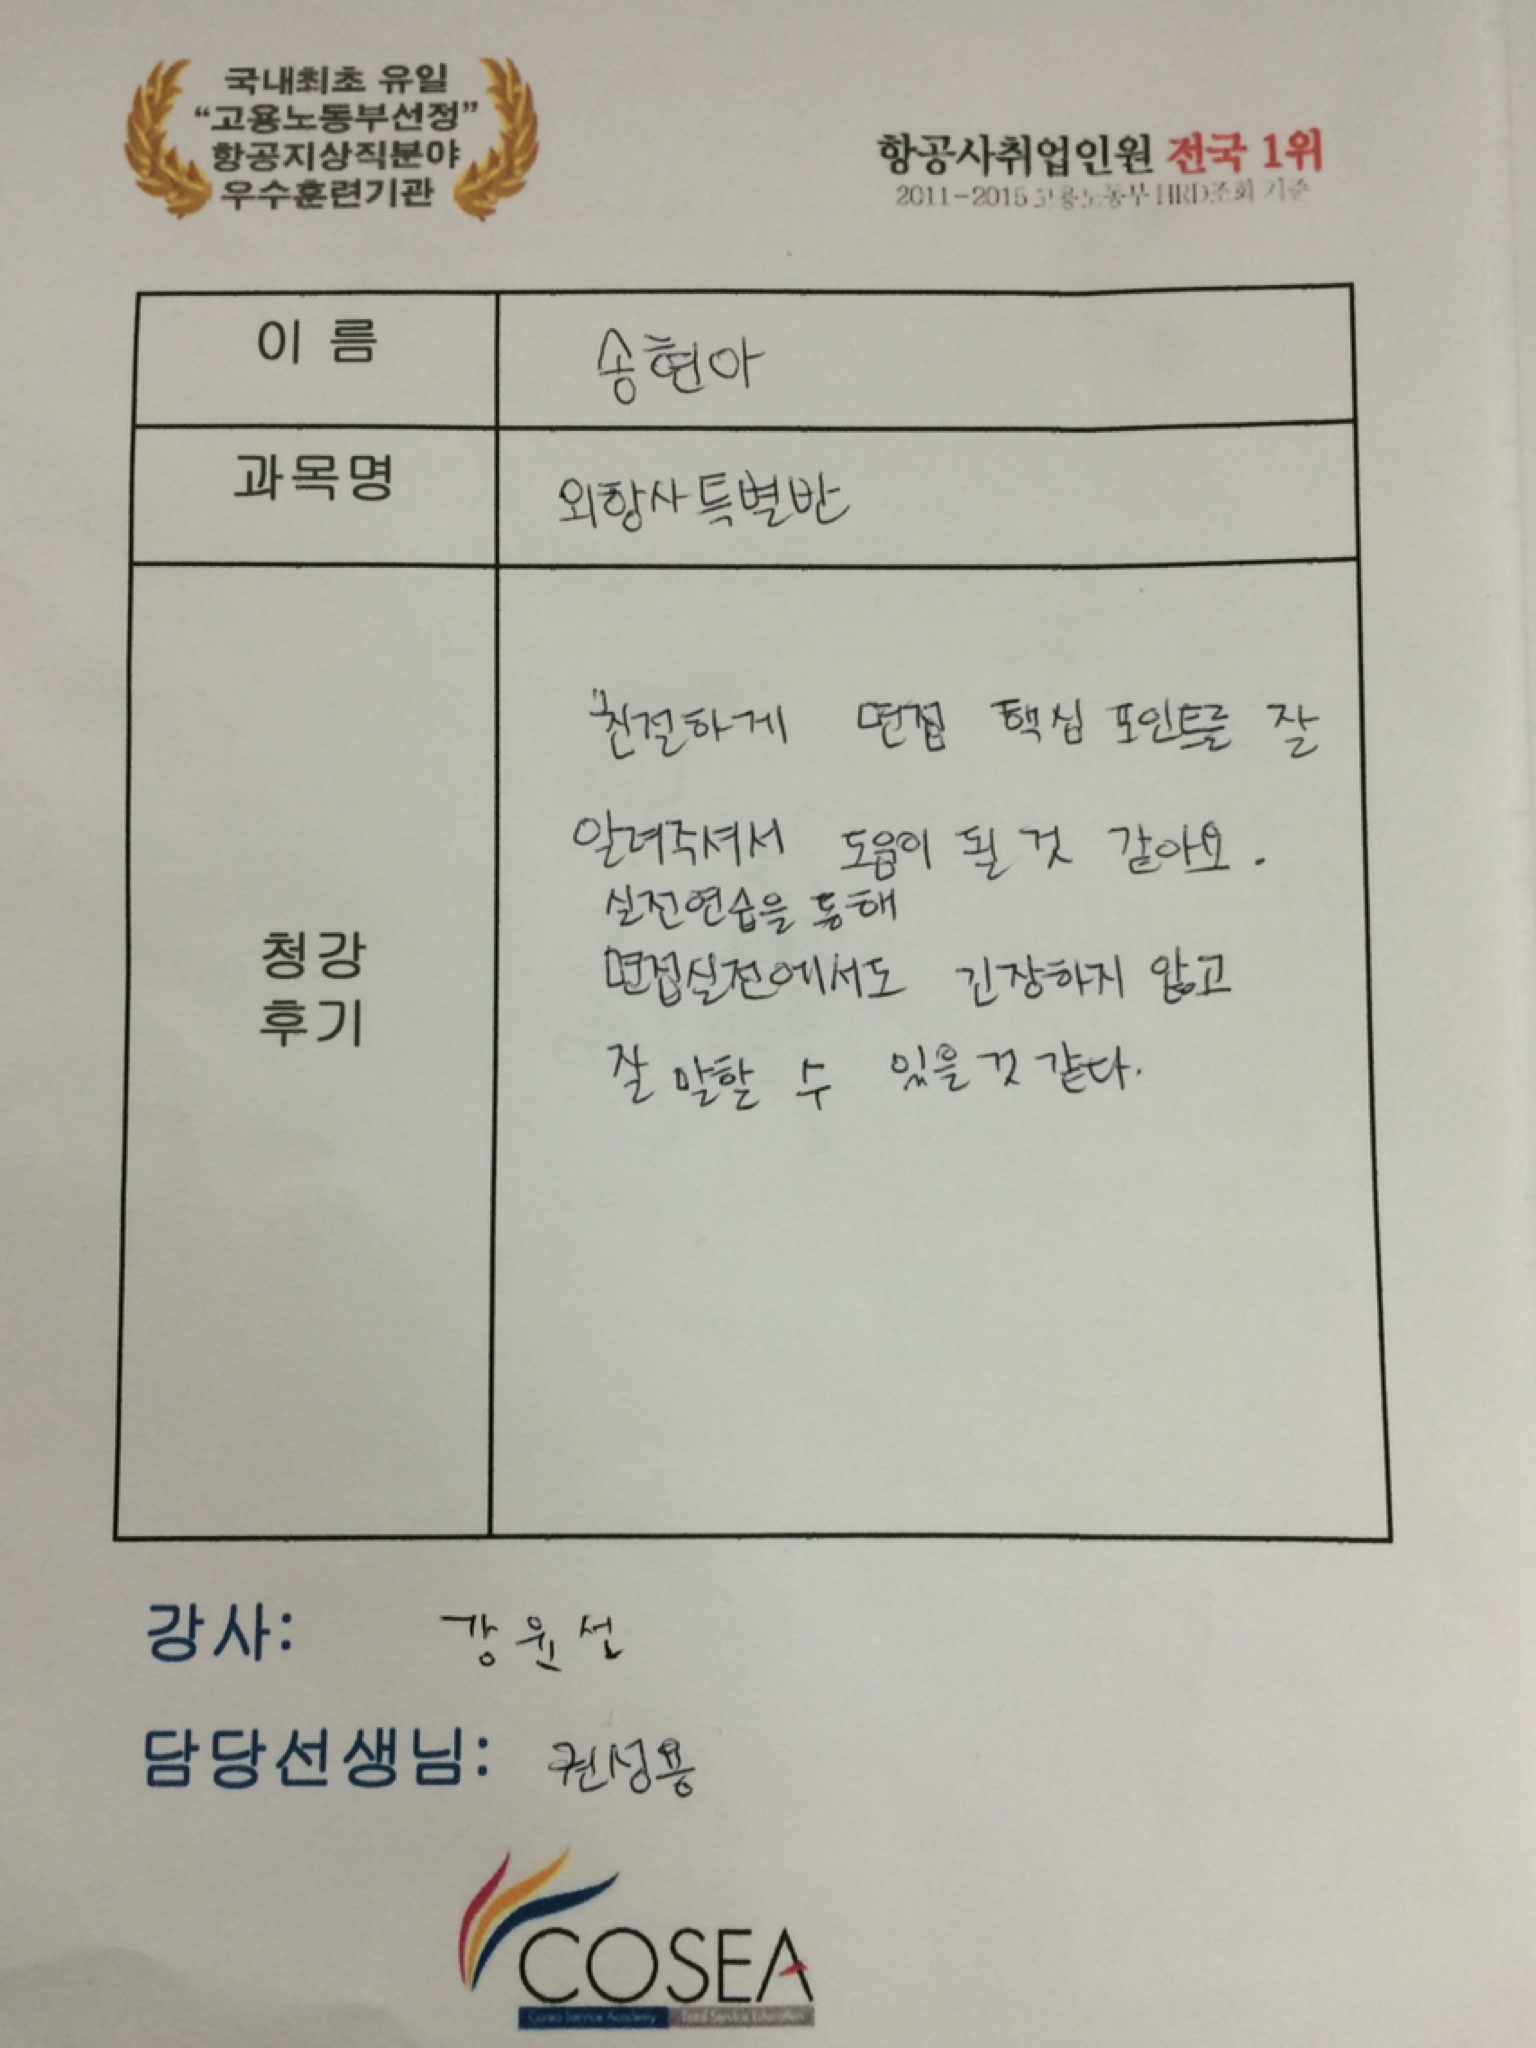 국내최초 유일
“고용노동부선정”
항공지상직분야
우수훈련기관
항공사취업인원 전국 1위
2011-2015 고용노동부 HRD조회 기준
이 름
송현아
과목명
외항사특별반
청강
후기
친절하게 면접 핵심 포인트를 잘
알려주셔서 도움이 될 것 같아요.
실전연습을 통해
면접실전에서도 긴장하지 않고
잘 말할 수 있을것 같다.
강사: 강윤선
담당선생님: 권성용
COSEA
Cosea Service Academy Total Service Education